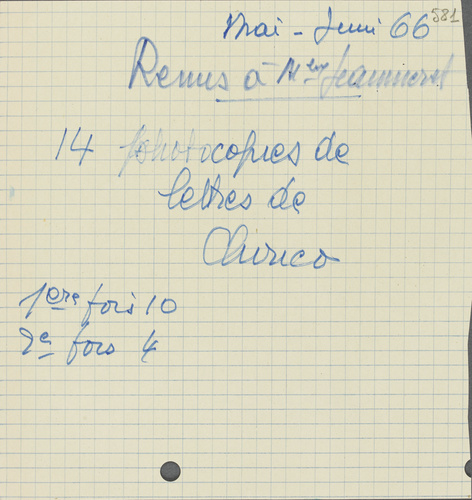 581
Mai - Juin 66
Remis à Mlle Jeanneret
14 photocopies de
lettres de
Chirico
1ère fois 10
2e fois 4